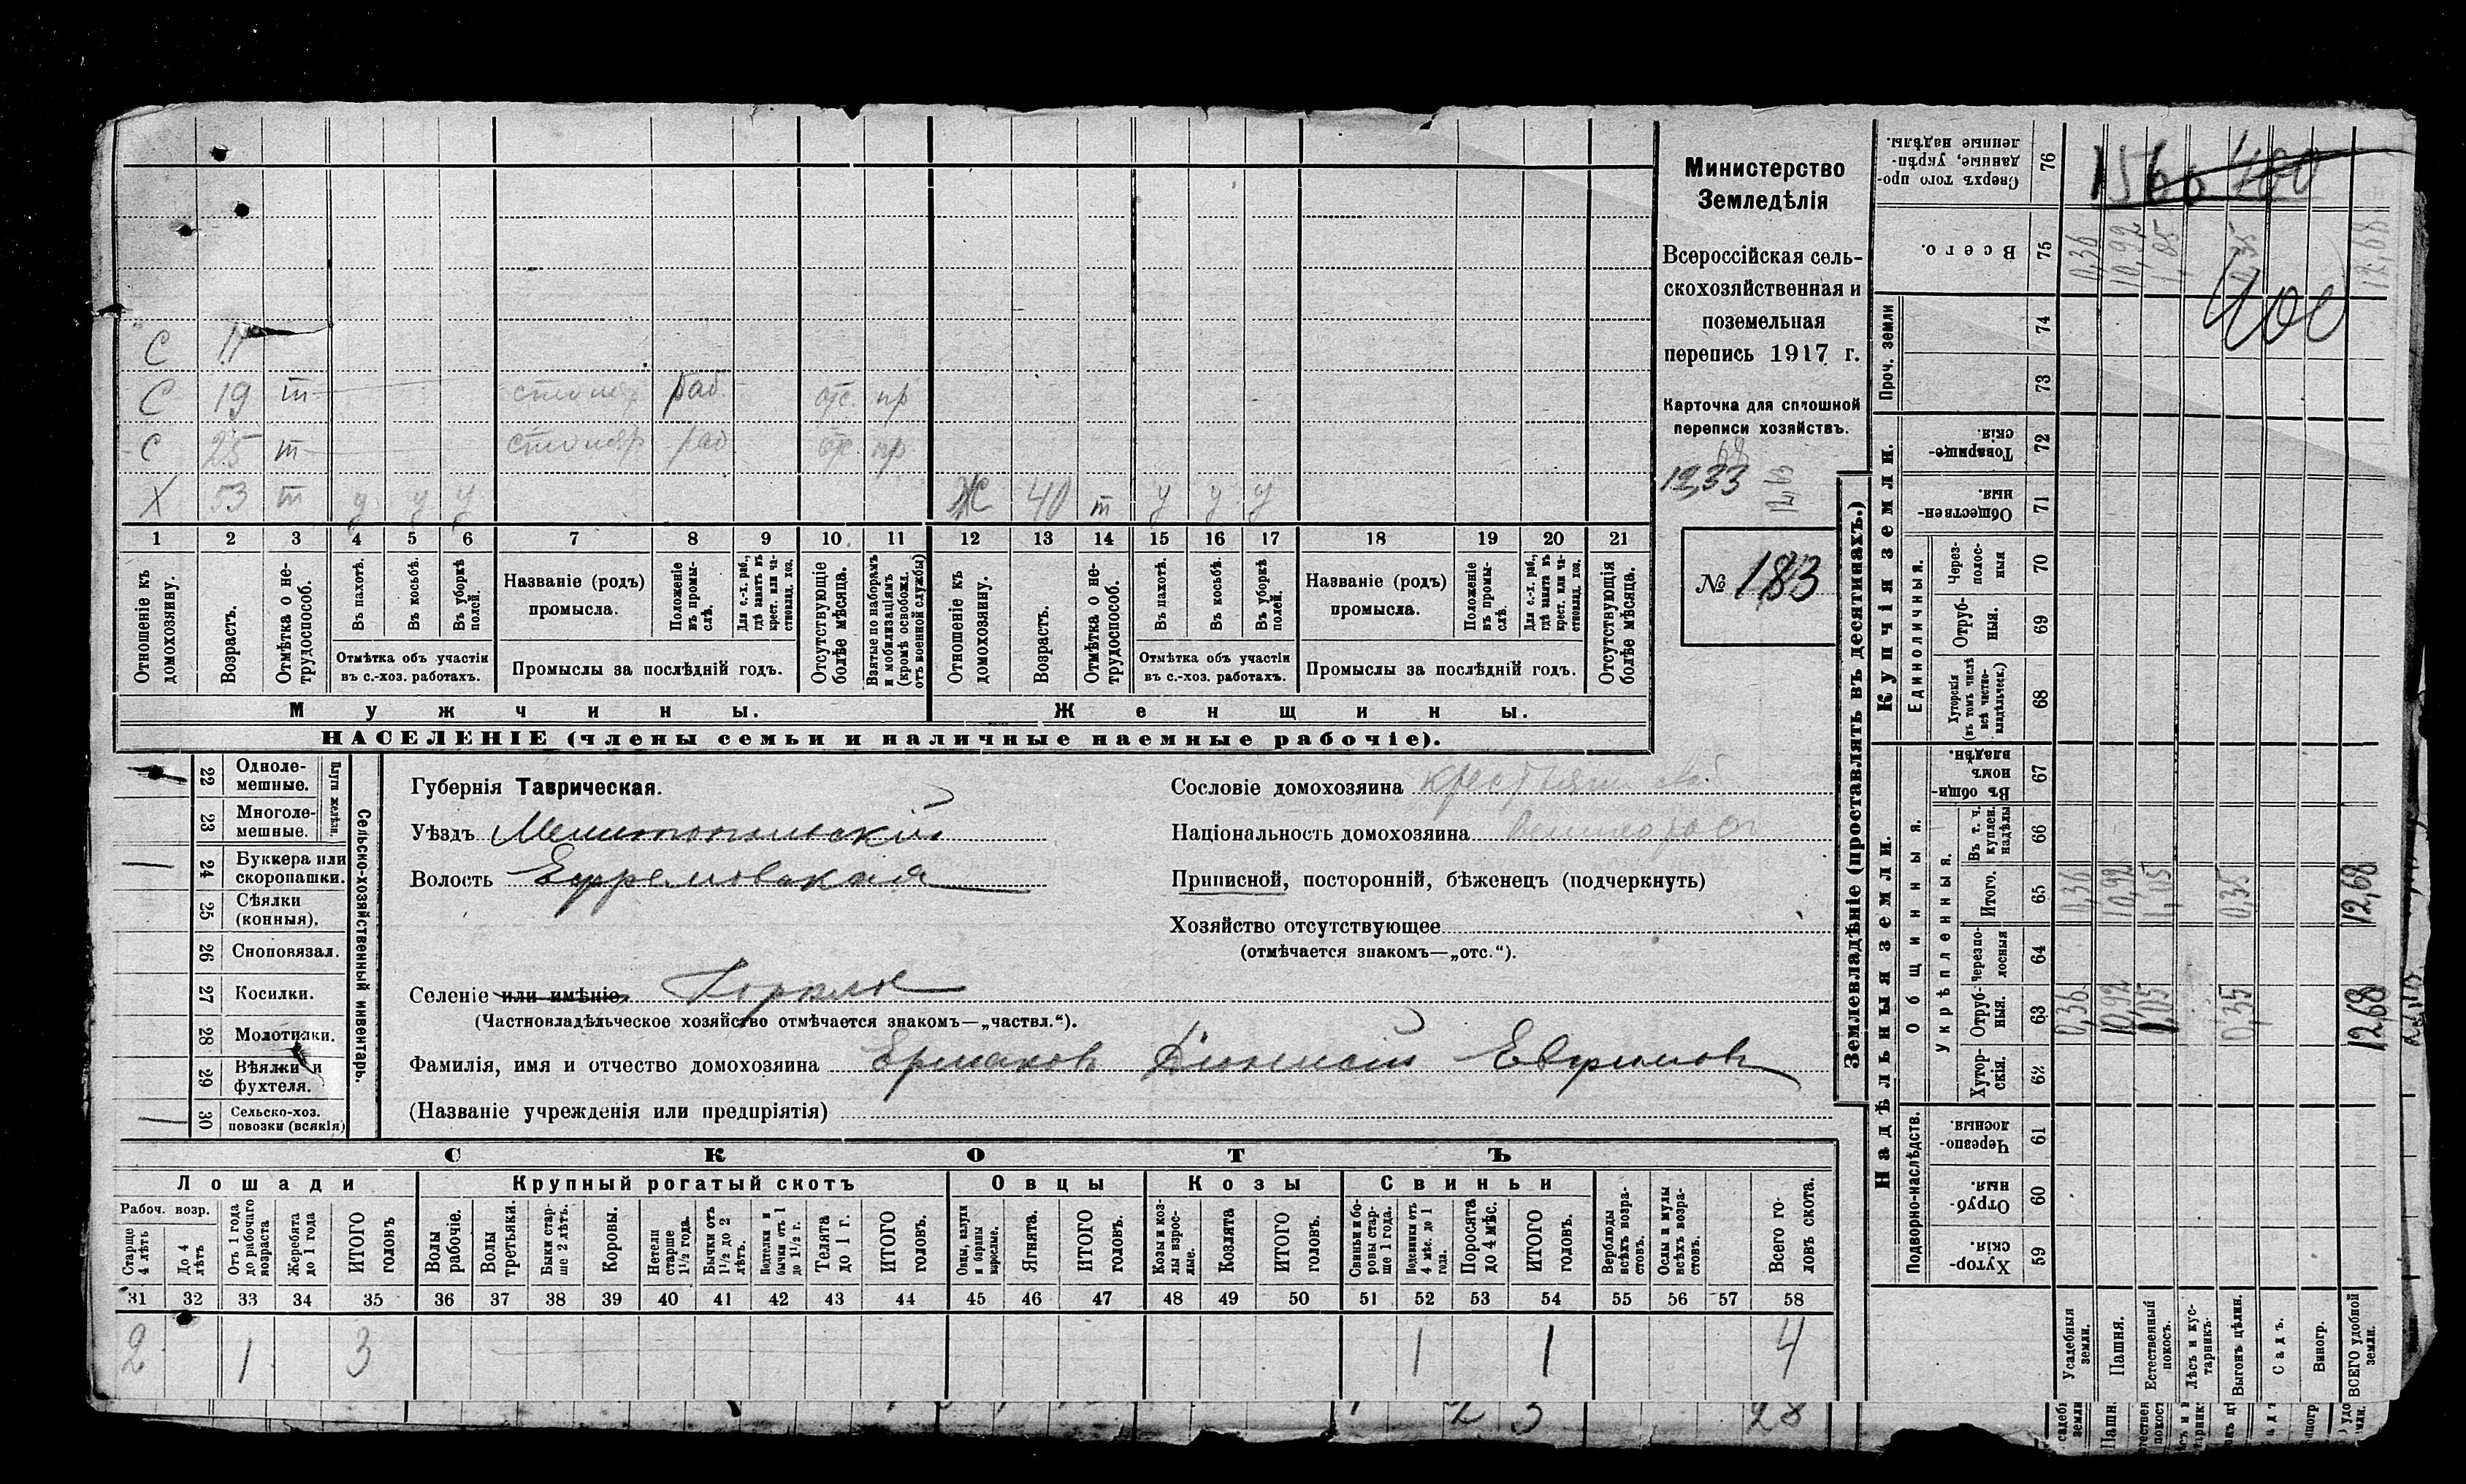 С 11
С 19 т столяр раб. отс. пр
С 25 т столяр раб отс. пр.
Х 53 т у у у Ж 40 т у у у
1 2 3 4 5 6 7 8 9 10 11 12 13 14 15 16 17 18 19 20 21
Отношеніе къ домохозяину.
Возрастъ.
Отмѣтка о не-трудоспособ.
Въ пахотѣ.
Въ косьбѣ.
Въ уборкѣ полей.
Отмѣтка объ участіи
въ с.-хоз. работахъ.
Названіе (родъ)
промысла.
Положеніе въ промы-слѣ.
Для с.-х. раб., гдѣ занятъ въ крест. или ча-стновлад. хоз.
Промыслы за послѣдній годъ.
Отсутствующіе болѣе мѣсяца.
Взятые по наборамъ и мобилизаціямъ (кромѣ освобожд. отъ военной службы)
Отношеніе къ домохозяину.
Возрастъ.
Отмѣтка о не-трудоспособ.
Въ пахотѣ.
Въ косьбѣ.
Въ уборкѣ полей.
Отмѣтка объ участіи
въ с.-хоз. работахъ.
Названіе (родъ)
промысла.
Положеніе въ промы-слѣ.
Для с.-х. раб., гдѣ занятъ въ крест. или ча-стновлад. хоз.
Промыслы за послѣдній годъ.
Отсутствующія болѣе мѣсяца.
Мужчины. Женщины.
НАСЕЛЕНІЕ (члены семьи и наличные наемные рабочіе).
Министерство
Земледѣлія
Всероссійская сель-
скохозяйственная и
поземельная
перепись 1917 г.
Карточка для сплошной
переписи хозяйствъ.
12,33
№ 183
22 Одноле-мешные.
23 Многоле-мешные.
Плуги желѣзн.
24 Буккера или скоропашки.
25 Сѣялки (конныя).
26 Сноповязал.
27 Косилки.
28 Молотилки.
29 Вѣялки и фухтеля.
30 Сельско-хоз. повозки (всякія)
Сельско-хозяйственный инвентарь.
Губернія Таврическая.
Уѣздъ Мелитопольскій
Волость Ефремовская
Селеніе или имѣніе
(Частновладѣльческое хозяйство отмѣчается знакомъ—„частвл.“).
Сословіе домохозяина
Національность домохозяина великоросс
Приписной, посторонній, бѣженецъ (подчеркнуть)
Хозяйство отсутствующее
(отмѣчается знакомъ—„отс.“).
Фамилія, имя и отчество домохозяина Ермаковъ Діонисій Евфимовъ
(Названіе учрежденія или предпріятія)
СКОТЪ
Лошади Крупный рогатый скотъ Овцы Козы Свиньи
Рабоч. возр.
Старше 4 лѣтъ
До 4 лѣтъ
Отъ 1 года до рабочаго возраста
Жеребята до 1 года
ИТОГО головъ
Волы рабочіе.
Волы третьяки.
Быки стар-ше 2 лѣтъ.
Коровы.
Нетели старше 1½ года.
Бычки отъ 1½ до 2 лѣтъ.
Подтелки и бычки отъ 1 до 1½ г.
Телята до 1 г.
ИТОГО головъ.
Овцы, валухи и бараны взрослые.
Ягнята.
ИТОГО головъ.
Козы и коз-лы взрос-лые.
Козлята
ИТОГО головъ.
Свиньи и бо-ровы стар-ше 1 года.
Подсвинки отъ 4 мѣс. до 1 года.
Поросята до 4 мѣс.
ИТОГО головъ.
Верблюды всѣхъ возра-стовъ.
Ослы и мулы всѣхъ возра-стовъ.
Всего го-ловъ скота.
31 32 33 34 35 36 37 38 39 40 41 42 43 44 45 46 47 48 49 50 51 52 53 54 55 56 57 58
2 1 3 1 1 4
2 3 28
Землевладѣніе (проставлять въ десятинахъ.)
Надѣльныя земли. Купчія земли. Проч. земли
Подворно-наслѣдств. Общинныя.
Укрѣпленныя. Единоличныя.
Сверхъ того про-данные, укрѣп-ленные надѣлы. 76 1560 400
Всего. 75 0,36 10,92 1,05 0,35 12,68
400
74
73
Товарище-скія. 72
Обществен-ныя. 71
Через-полос-ныя 70
Отруб-ныя. 69
Хуторскія (въ томъ числѣ всѣ частно-владѣльческ.) 68
Въ общи-номъ владѣн. 67
Въ т. ч. куплен. надѣлы 66
Итого. 65 0,36 10,92 1,05 0,35 12,68
Черезпо-лосныя 64
Отруб-ныя. 63 0,36 10,92 1,05 0,35 12,68
Хутор-скія. 62
Черезпо-лосныя. 61
Отруб-ныя. 60
Хутор-скія. 59
Усадебныя земли.
Пашня.
Естественный покосъ.
Лѣсъ и кус-тарникъ.
Выгонъ цѣлин.
Садъ.
Виногр.
ВСЕГО удобной земли.